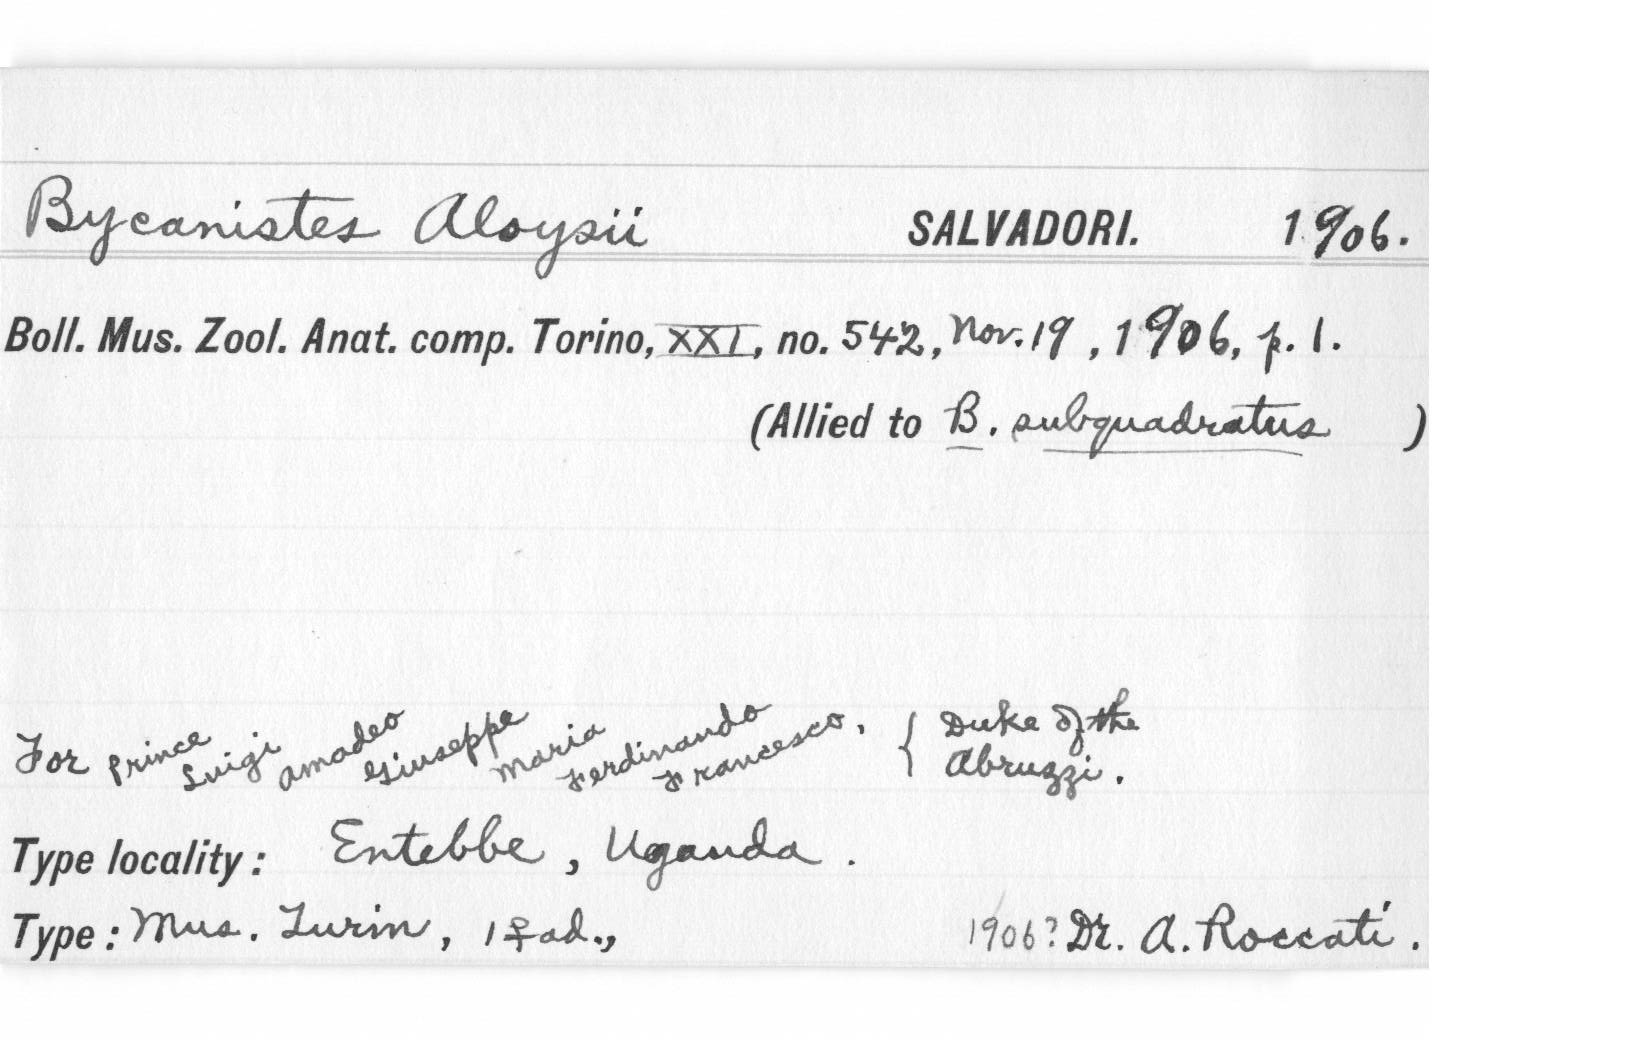 Bycanistes Aloysii SALVADORI. 1906.
Boll. Mus. Zool. Anat. comp. Torino, XXI, no. 542, Nov. 19, 1906, p. 1.
(Allied to B. subquadratus )
For Prince Luigi Amadeo Giuseppe Maria Ferdinando Francesco, { Duke of the
Abruzzi.
Type locality: Entebbe, Uganda.
Type: Mus. Turin, 1 ♀ ad., 1906? Dr. A. Roccati.